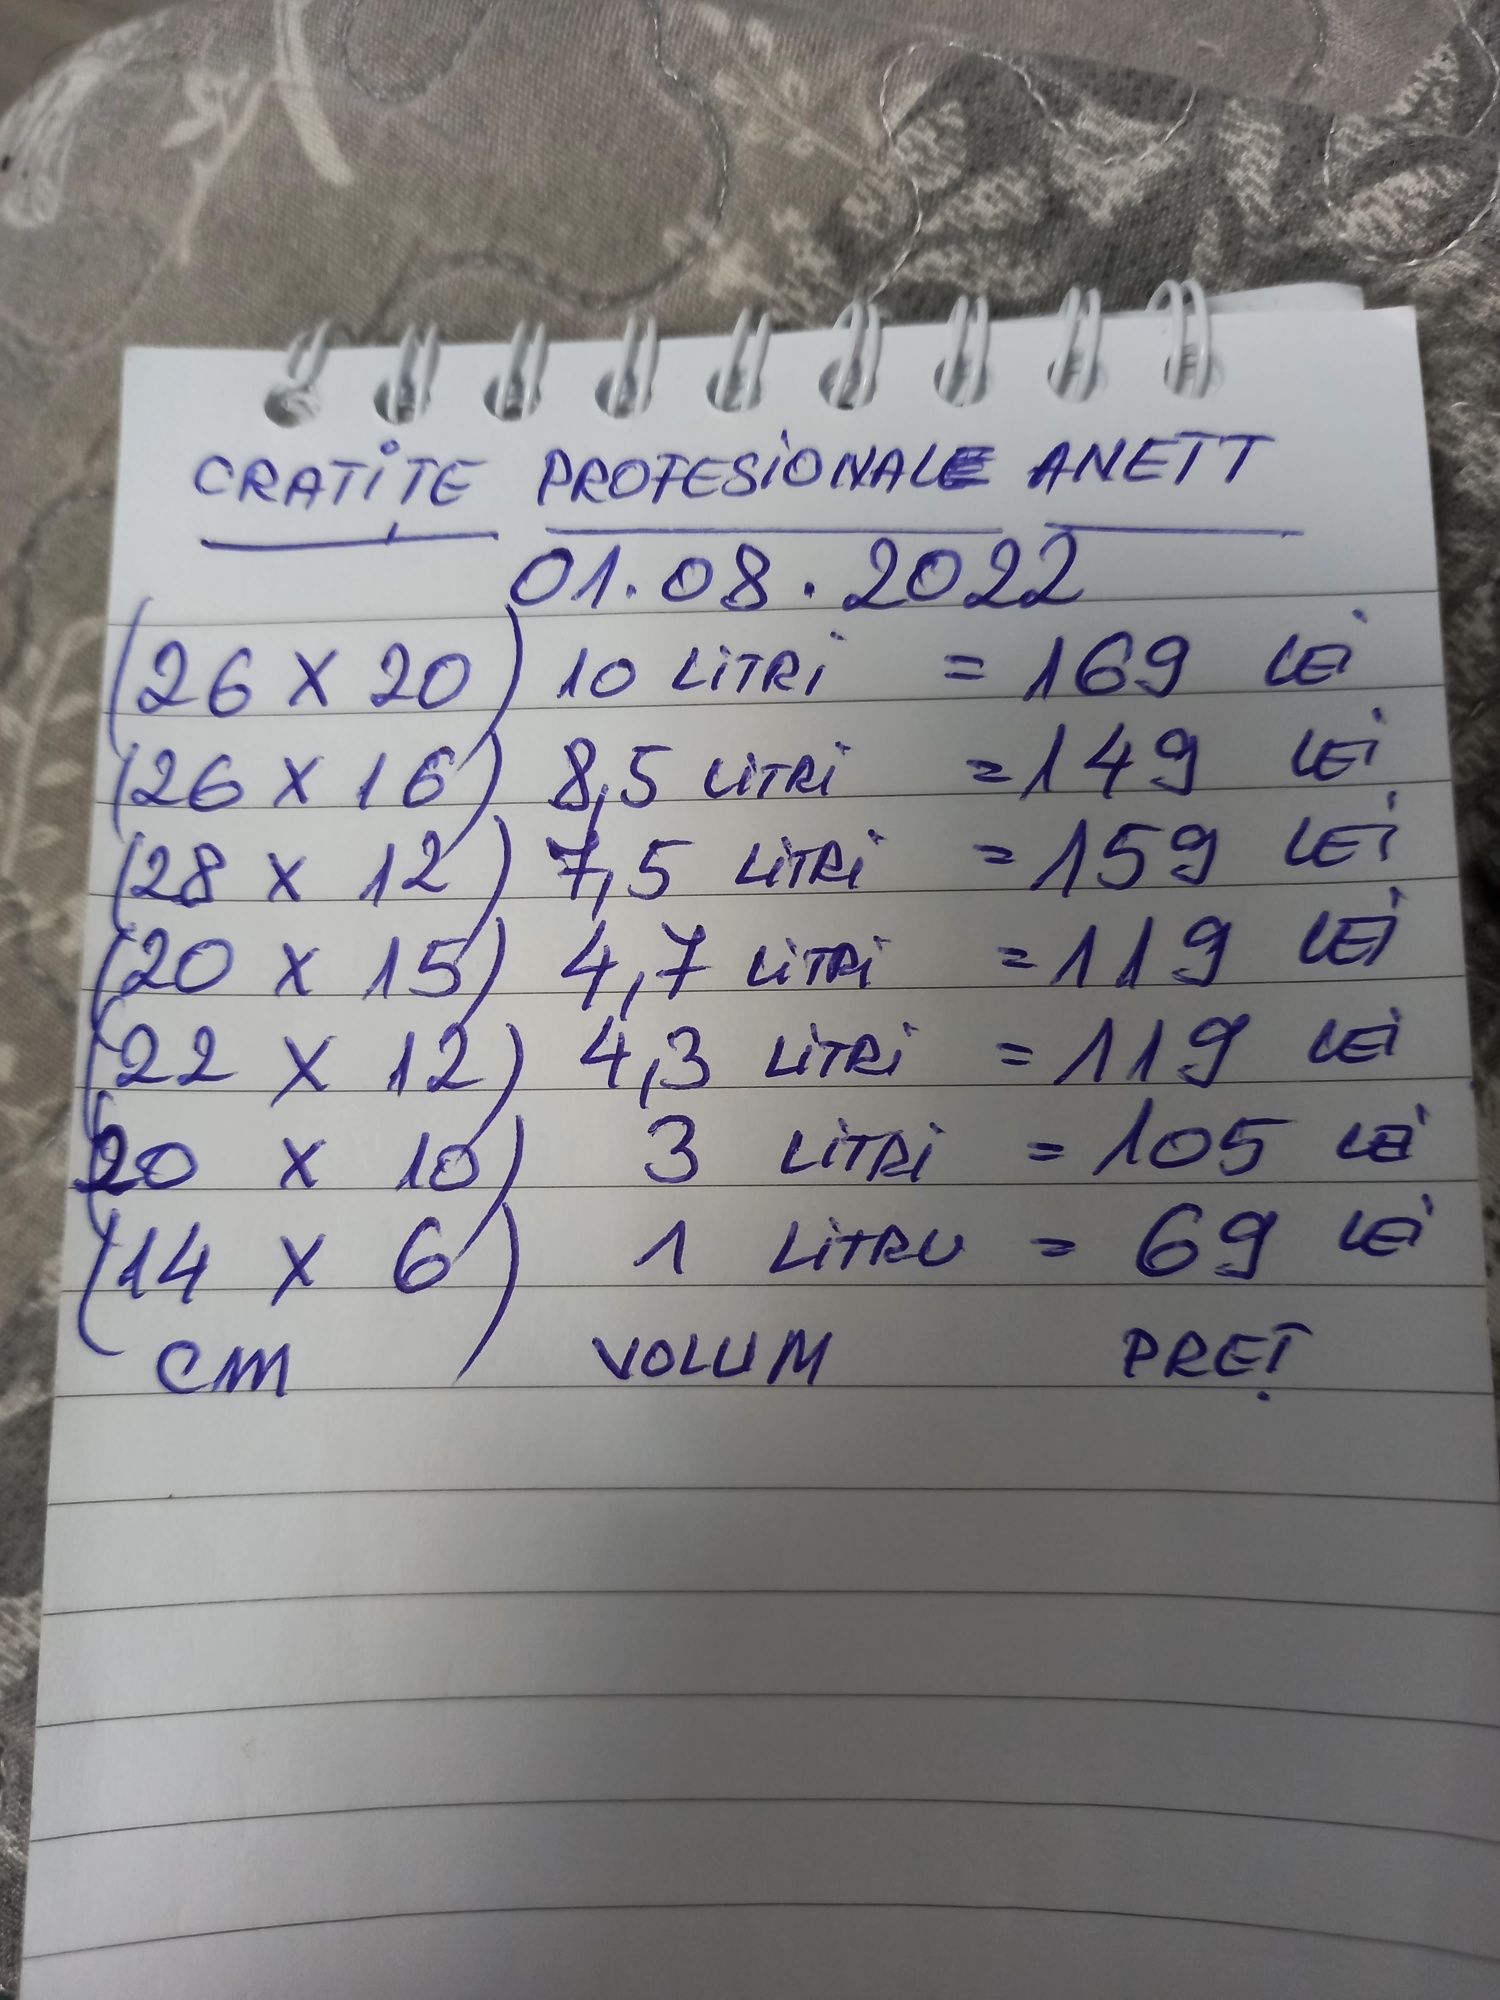 CRATIȚE PROFESIONALE ANETT
01.08.2022
(26 X 20) 10 LITRI = 169 LEI
(26 X 16) 8,5 LITRI = 149 LEI
(28 X 12) 7,5 LITRI = 159 LEI
(20 X 15) 4,7 LITRI = 119 LEI
(22 X 12) 4,3 LITRI = 119 LEI
(20 X 10) 3 LITRI = 105 LEI
(14 X 6) 1 LITRU = 69 LEI
CM VOLUM PREȚ